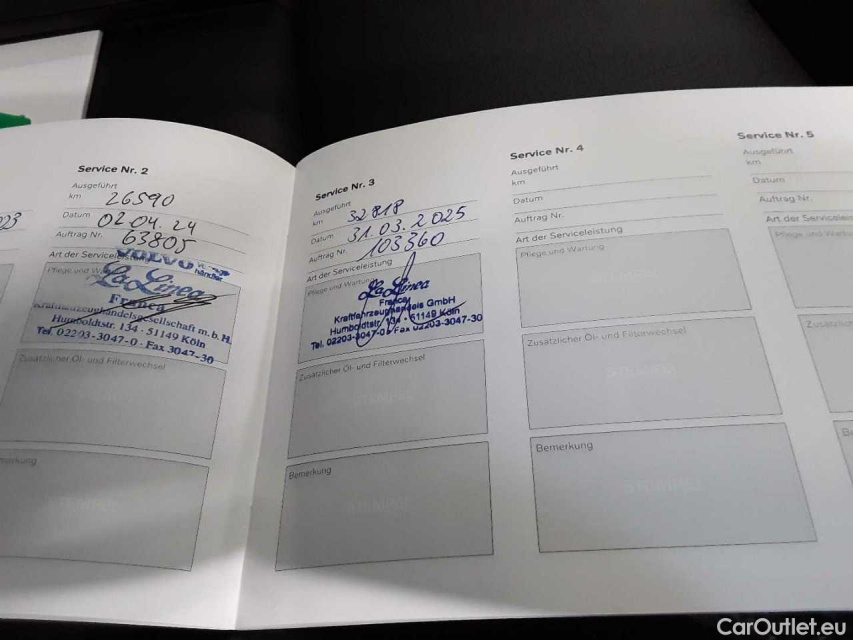 Service Nr. 2
Ausgeführt
km 26590
Datum 02.04.24
Auftrag Nr. 63805
Art der Serviceleistung
Pflege und Wartung
VOLVO
händler
La Linea
Franca
Kraftfahrzeughandelsgesellschaft m.b.H.
Humboldtstr. 134 · 51149 Köln
Tel. 02203-3047-0 · Fax 3047-30
Zusätzlicher Öl- und Filterwechsel
Bemerkung
Service Nr. 3
Ausgeführt
km 32818
Datum 31.03.2025
Auftrag Nr. 103360
Art der Serviceleistung
Pflege und Wartung
La Linea
Franca
Kraftfahrzeughandels GmbH
Humboldtstr. 134 · 51149 Köln
Tel. 02203-3047-0 · Fax 02203-3047-30
Zusätzlicher Öl- und Filterwechsel
Bemerkung
Service Nr. 4
Ausgeführt
km
Datum
Auftrag Nr.
Art der Serviceleistung
Pflege und Wartung
Zusätzlicher Öl- und Filterwechsel
Bemerkung
Service Nr. 5
Ausgeführt
km
Datum
Auftrag Nr.
Art der Serviceleis
Pflege und Wart
Zusätzlich
Be
CarOutlet.eu